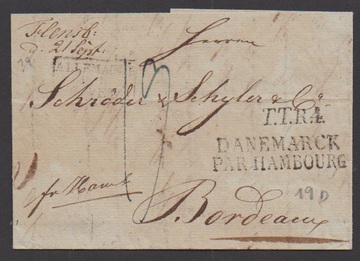 Flensb:
d. 21 Sept.
Herren
ALLEMAGNE
Schröder & Schyler & Co.
T.T.R.4.
DANEMARCK
PAR HAMBOURG
fr Hamb
19 D
Bordeaux